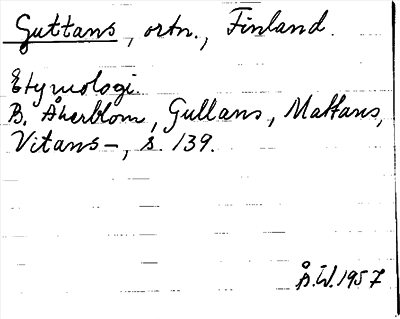 Guttans, ortn., Finland.
Etymologi.
B. Åkerblom, Gullans, Mattans,
Vitans-, s. 139.
Å.W. 1957